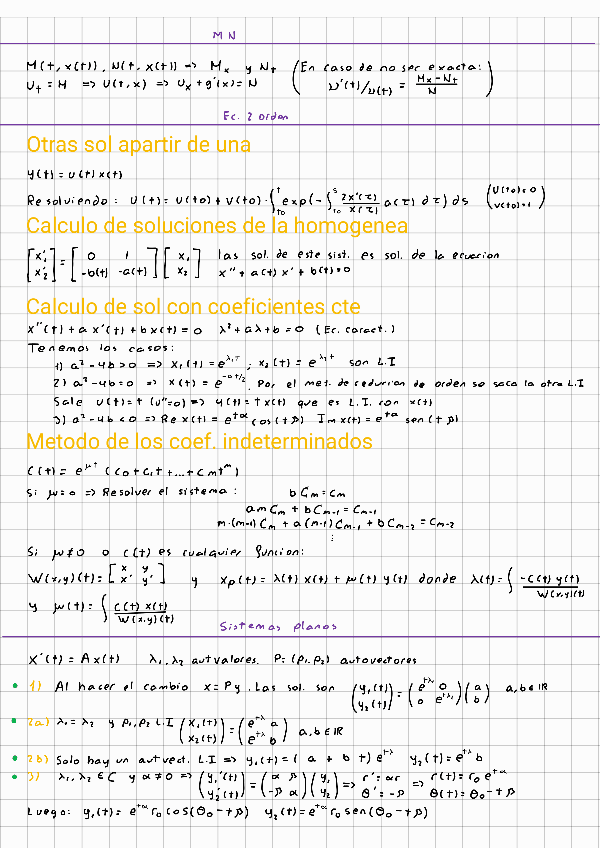 M N
M(t, x(t)), N(t, x(t)) => Mx y Nt (En caso de no ser exacta:
Ut = M => U(t,x) => Ux + g'(x) = N μ'(t)/μ(t) = (Mx - Nt)/N )
Ec. 2 orden
Otras sol apartir de una
y(t) = u(t) x(t)
Resolviendo: U(t) = U(t0) + V(t0) · ∫_{t0}^{t} exp(- ∫_{t0}^{s} 2x'(τ)/x(τ) a(τ) dτ) ds (U(t0)=0 V(t0)=1)
Calculo de soluciones de la homogenea
[x1' x2'] = [0 1 -b(t) -a(t)] [x1 x2] las sol. de este sist. es sol. de la ecuacion
x'' + a(t) x' + b(t) = 0
Calculo de sol con coeficientes cte
x''(t) + a x'(t) + b x(t) = 0 λ² + aλ + b = 0 (Ec. caract.)
Tenemos los casos:
1) a² - 4b > 0 => x1(t) = e^{λ1t} ; x2(t) = e^{λ2t} son L.I
2) a² - 4b = 0 => x(t) = e^{-at/2}. Por el met. de reducion de orden se saca la otra L.I
Sale u(t) = t (u''=0) => y(t) = t x(t) que es L.I. con x(t)
3) a² - 4b < 0 => Re x(t) = e^{tα} cos(tβ) Im x(t) = e^{tα} sen(tβ)
Metodo de los coef. indeterminados
C(t) = e^{μt} (c0 + c1t + ... + cmt^m)
Si μ = 0 => Resolver el sistema: bCm = cm
amCm + bCm-1 = cm-1
m·(m-1)Cm + a(m-1)Cm-1 + bCm-2 = cm-2
⋮
Si μ ≠ 0 o c(t) es cualquier funcion:
W(x,y)(t) = [x y x' y'] y xp(t) = λ(t) x(t) + μ(t) y(t) donde λ(t) = ∫ -c(t) y(t) / W(x,y)(t)
y μ(t) = ∫ c(t) x(t) / W(x,y)(t)
Sistemas planos
X'(t) = A x(t) λ1, λ2 autvalores. P = (p1, p2) autovectores
1) Al hacer el cambio x = Py. Las sol. son (y1(t) y2(t)) = (e^{tλ} 0 0 e^{tλ1}) (a b) a, b ∈ IR
2a) λ1 = λ2 y p1, p2 L.I (x1(t) x2(t)) = (e^{tλ} a e^{tλ} b) a, b ∈ IR
2b) Solo hay un autvect. L.I => y1(t) = (a + b t) e^{tλ} y2(t) = e^{tλ} b
3) λ1, λ2 ∈ C y α ≠ 0 => (y1'(t) y2'(t)) = (α β -β α) (y1 y2) => r' = αr θ' = -β => r(t) = r0 e^{tα} θ(t) = θ0 - tβ
Luego: y1(t) = e^{tα} r0 cos(θ0 - tβ) y2(t) = e^{tα} r0 sen(θ0 - tβ)